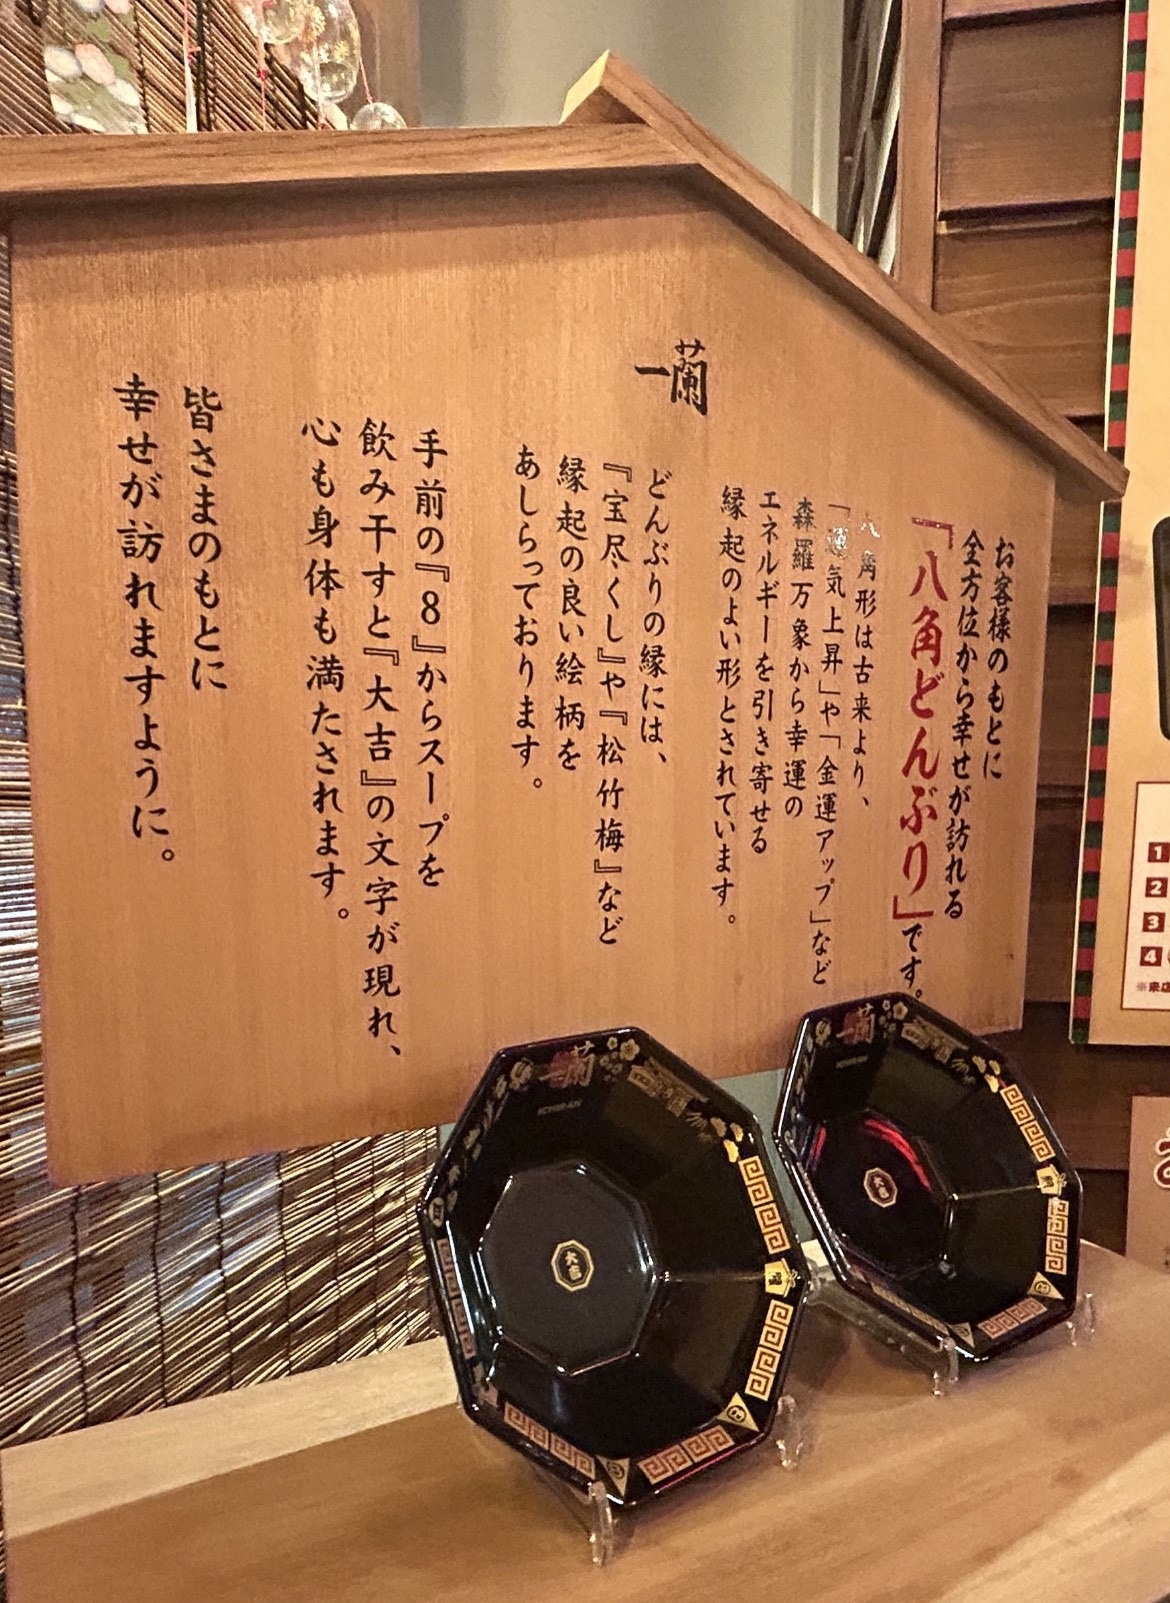 お客様のもとに
全方位から幸せが訪れる
「八角どんぶり」です。
八角形は古来より、
「運気上昇」や「金運アップ」など
森羅万象から幸運の
エネルギーを引き寄せる
縁起のよい形とされています。
一蘭
どんぶりの縁には、
『宝尽くし』や『松竹梅』など
縁起の良い絵柄を
あしらっております。
手前の『8』からスープを
飲み干すと『大吉』の文字が現れ、
心も身体も満たされます。
皆さまのもとに
幸せが訪れますように。
一蘭
ICHIRAN
大吉
一蘭
ICHIRAN
大吉
1
2
3
4
※来店